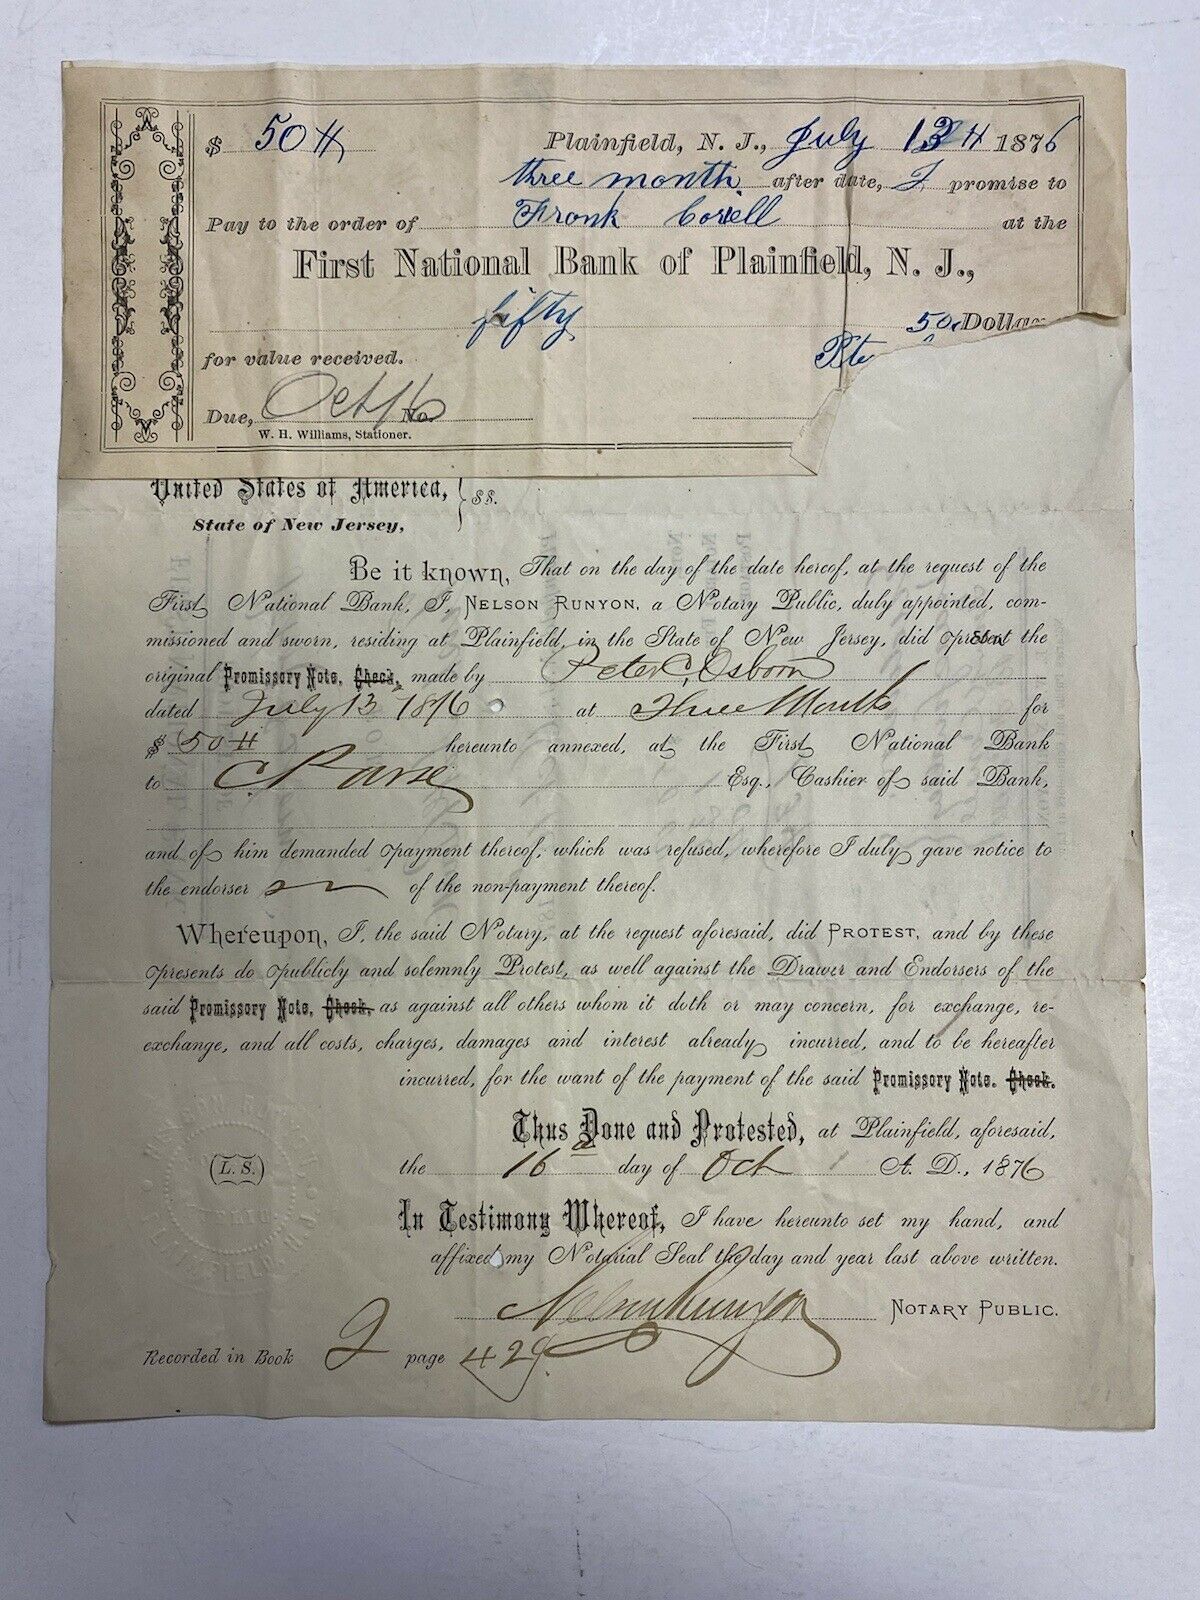 $ 50 H Plainfield, N. J., July 13 H 1876
three month after date, I promise to
Pay to the order of Frank Coriell at the
First National Bank of Plainfield, N. J.,
fifty 50 Dolla
Pete
for value received.
Due, Oct 16 No.
W. H. Williams, Stationer.
United States of America, } ss.
State of New Jersey,
Be it known, That on the day of the date hereof, at the request of the
First National Bank, I, NELSON RUNYON, a Notary Public, duly appointed, com-
missioned and sworn, residing at Plainfield, in the State of New Jersey, did present the
original Promissory Note, Check, made by Peter C. Osborn
dated July 13 1876 at Three Months for
$ 50 H hereunto annexed, at the First National Bank
to C Esq., Cashier of said Bank,
and of him demanded payment thereof, which was refused, wherefore I duly gave notice to
the endorser of the non-payment thereof.
Whereupon, I, the said Notary, at the request aforesaid, did PROTEST, and by these
presents do publicly and solemnly Protest, as well against the Drawer and Endorsers of the
said Promissory Note, Check, as against all others whom it doth or may concern, for exchange, re-
exchange, and all costs, charges, damages and interest already incurred, and to be hereafter
incurred, for the want of the payment of the said Promissory Note. Check.
Thus Done and Protested, at Plainfield, aforesaid,
(L. S.) the 16 day of Oct A. D., 1876
In Testimony Whereof, I have hereunto set my hand, and
affixed my Notarial Seal the day and year last above written.
Nelson Runyon NOTARY PUBLIC.
Recorded in Book 2 page 429